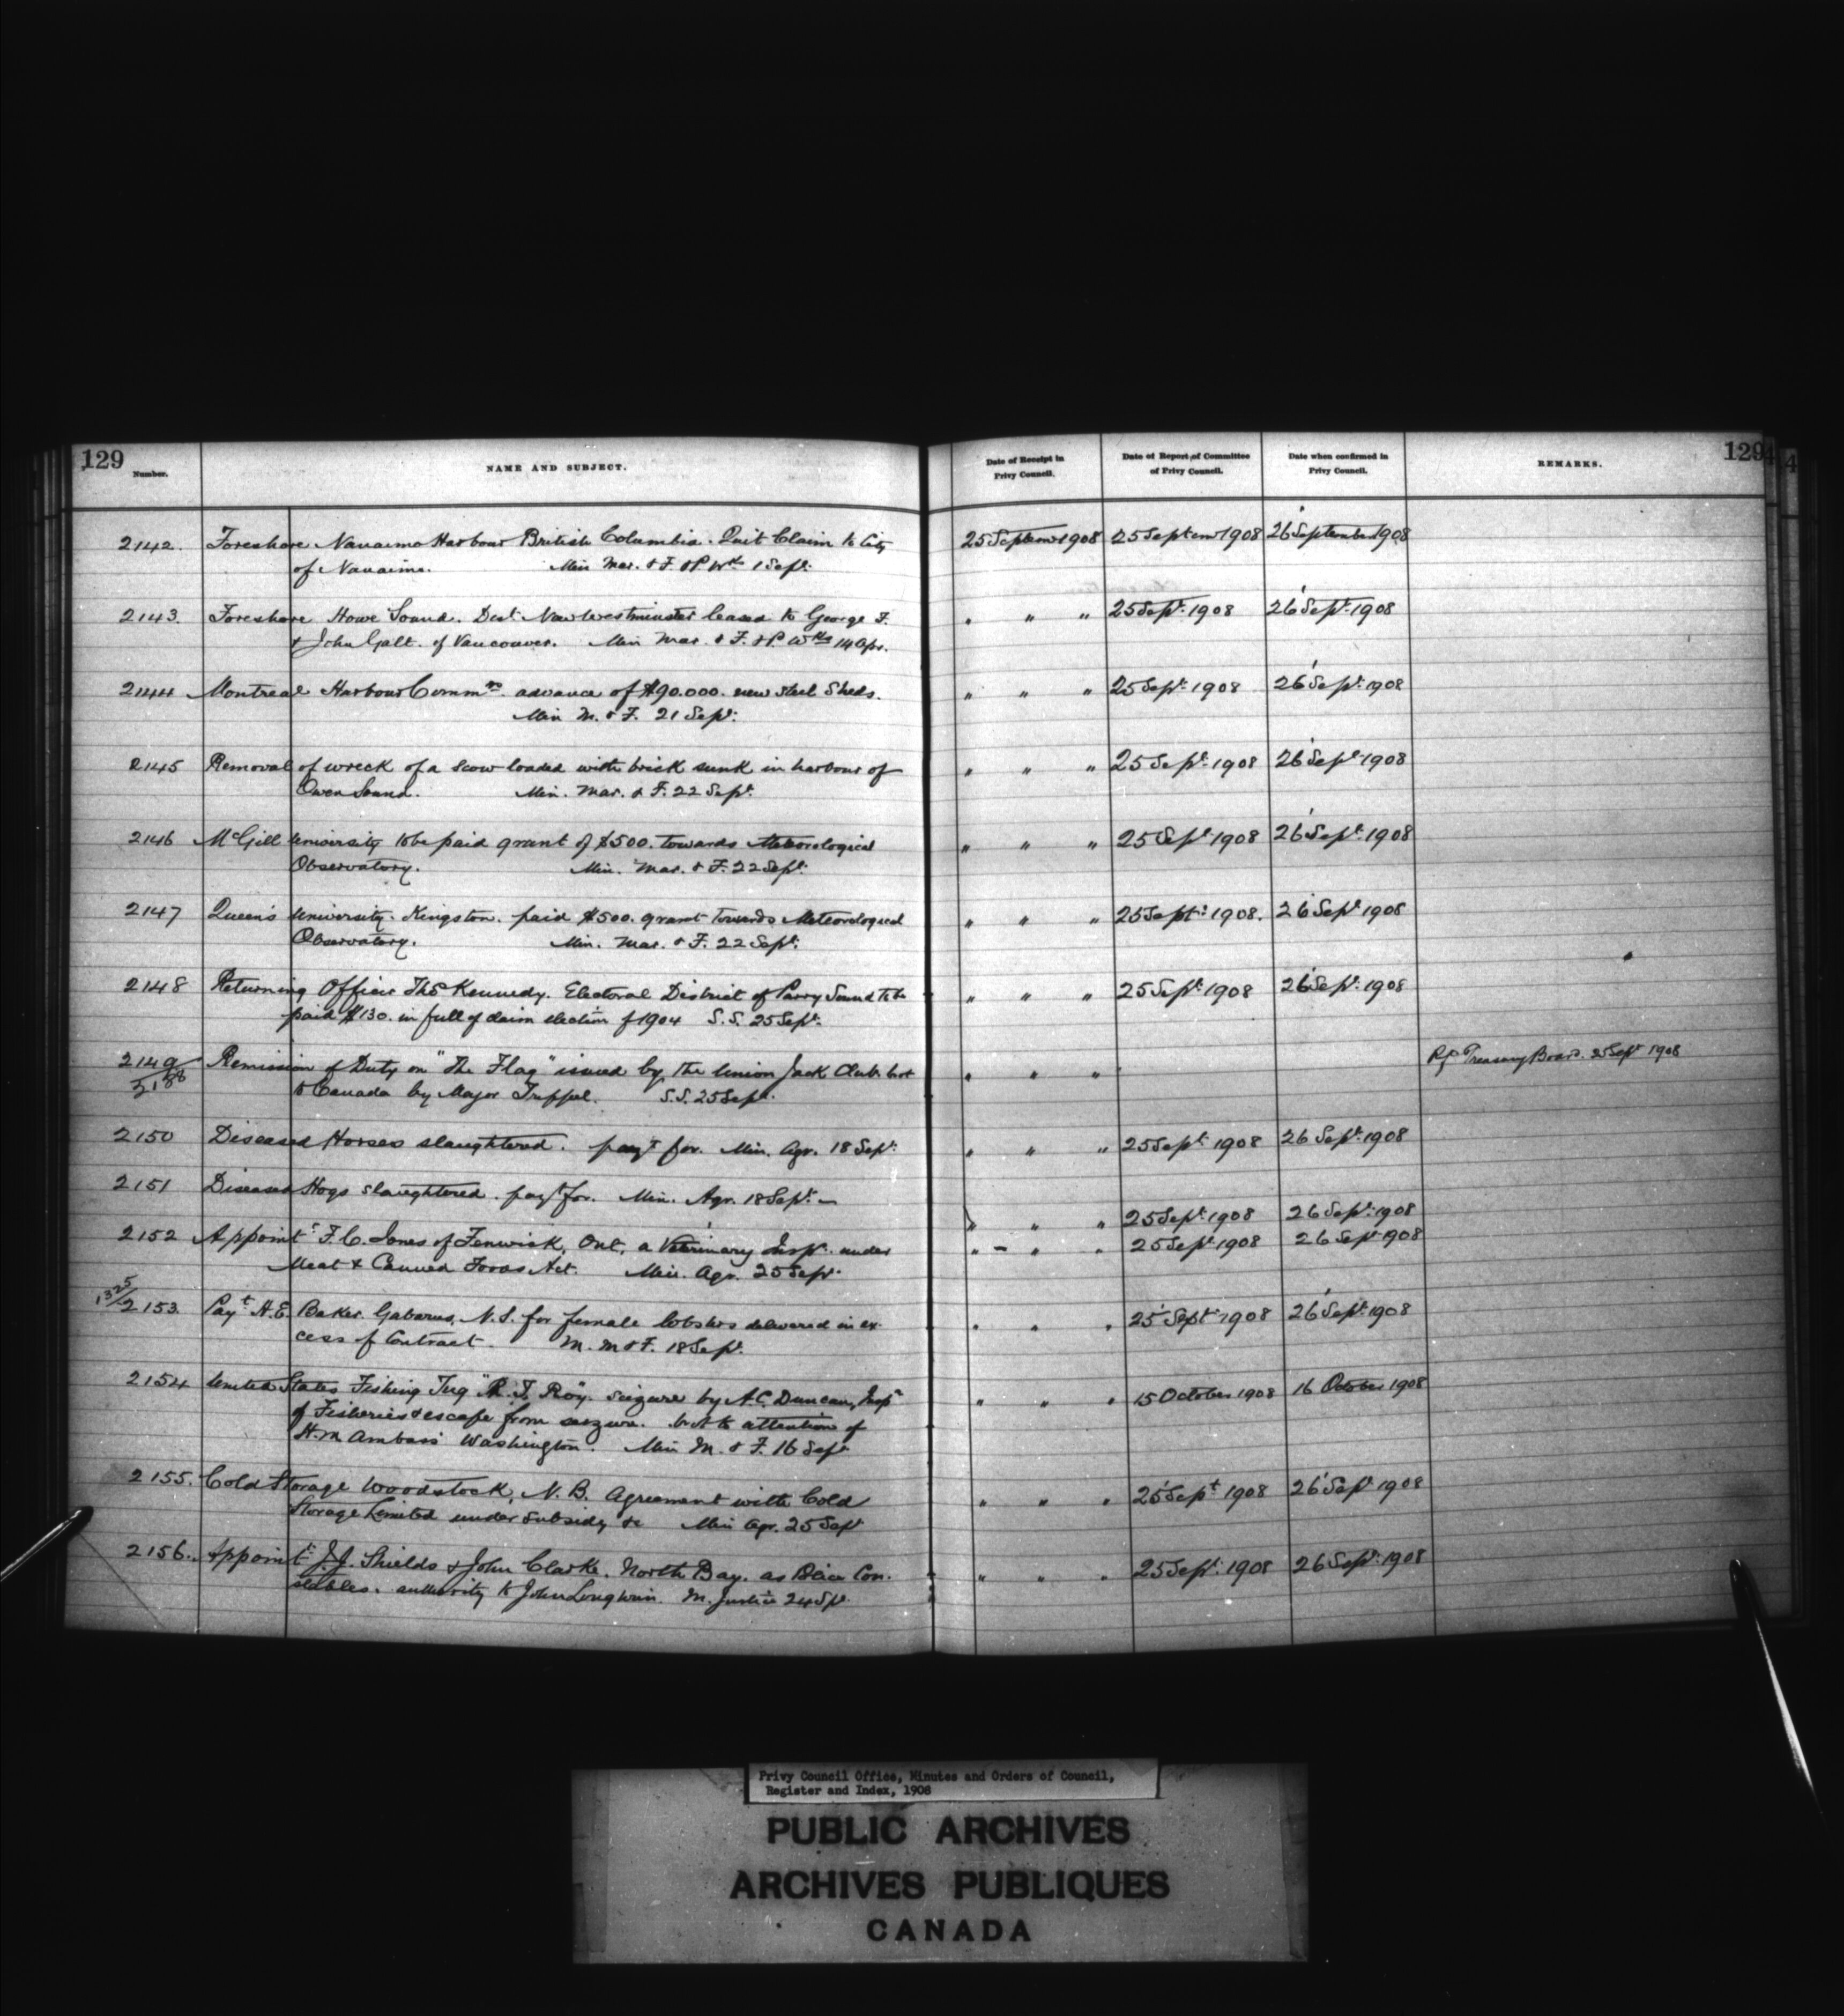 129
129
Number.
NAME AND SUBJECT.
Date of Receipt in
Privy Council.
Date of Report of Committee
of Privy Council.
Date when confirmed in
Privy Council.
REMARKS.
2142. Foreshore Nanaimo Harbour British Columbia. Quit Claim to City 25 Septemr 1908 25 Septemr 1908 26 September 1908
of Nanaimo. Min Mar. & F. & P. Wks 1 Sept.
2143. Foreshore Howe Sound. Dist New Westminster leased to George F. " " " 25 Sept. 1908 26 Sept. 1908
& John Galt. of Vancouver. Min Mar. & F. & P. Wks 14 Apr.
2144 Montreal Harbour Commrs. advance of $90.000. new steel Sheds. " " " 25 Sept. 1908 26 Sept. 1908
Min M. & F. 21 Sept.
2145 Removal of wreck of a scow loaded with brick sunk in harbour of " " " 25 Sept. 1908 26 Sept. 1908
Owen Sound. Min. Mar. & F. 22 Sept.
2146 McGill University to be paid grant of $500. towards Meteorological " " " 25 Sept. 1908 26 Sept. 1908
Observatory. Min. Mar. & F. 22 Sept.
2147 Queen's University. Kingston. paid $500. grant towards Meteorological " " " 25 Sept. 1908. 26 Sept. 1908
Observatory. Min. Mar. & F. 22 Sept.
2148 Returning Officer Thos Kennedy. Electoral District of Parry Sound to be " " " 25 Sept. 1908 26 Sept. 1908
paid $130. in full of claim election of 1904 S.S. 25 Sept.
2149 Remission of Duty on "The Flag" issued by the Union Jack Club bot " " " Treasury Board. 25 Sept 1908
to Canada by Major S.S. 25 Sept.
2150 Diseased Horses slaughtered. payt for. Min. Agr. 18 Sept. " " " 25 Sept. 1908 26 Sept. 1908
2151 Diseased Hogs slaughtered. payt for. Min. Agr. 18 Sept. — " " " 25 Sept. 1908 26 Sept. 1908
2152 Appointt F. C. Jones of Fenwick, Ont, a Veterinary Inspr. under " — " " 25 Sept. 1908 26 Sept. 1908
Meat & Canned Foods Act. Min. Agr. 25 Sept.
1325/2153. Payt H. E. Baker. Gabarus, N.S. for female lobsters delivered in ex- " " " 25 Sept. 1908 26 Sept. 1908
cess of Contract. M. M & F. 18 Sept.
2154 United States Fishing Tug "R. J. Roy". seizure by A. C. Duncan, Inspr " " " 15 October 1908 16 October 1908
of Fisheries & escape from seizure. brot to attention of
H.M Ambassr Washington. Min M. & F. 16 Sept
2155. Cold Storage Woodstock, N. B. Agreement with Cold " " " 25 Sept 1908 26 Sept 1908
Storage Limited under Subsidy &c Min Agr. 25 Sept
2156. Appointt J. J. Shields & John Clarke. North Bay. as Police Con- " " " 25 Sept. 1908 26 Sept. 1908
stables. authority to John M. Justice 24 Sept.
Privy Council Office, Minutes and Orders of Council,
Register and Index, 1908
PUBLIC ARCHIVES
ARCHIVES PUBLIQUES
CANADA